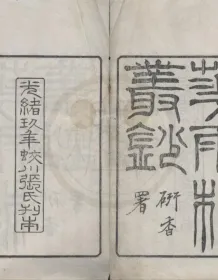 花雨樓
叢鈔
研香
署
光緒玖年蛟川張氏刊本